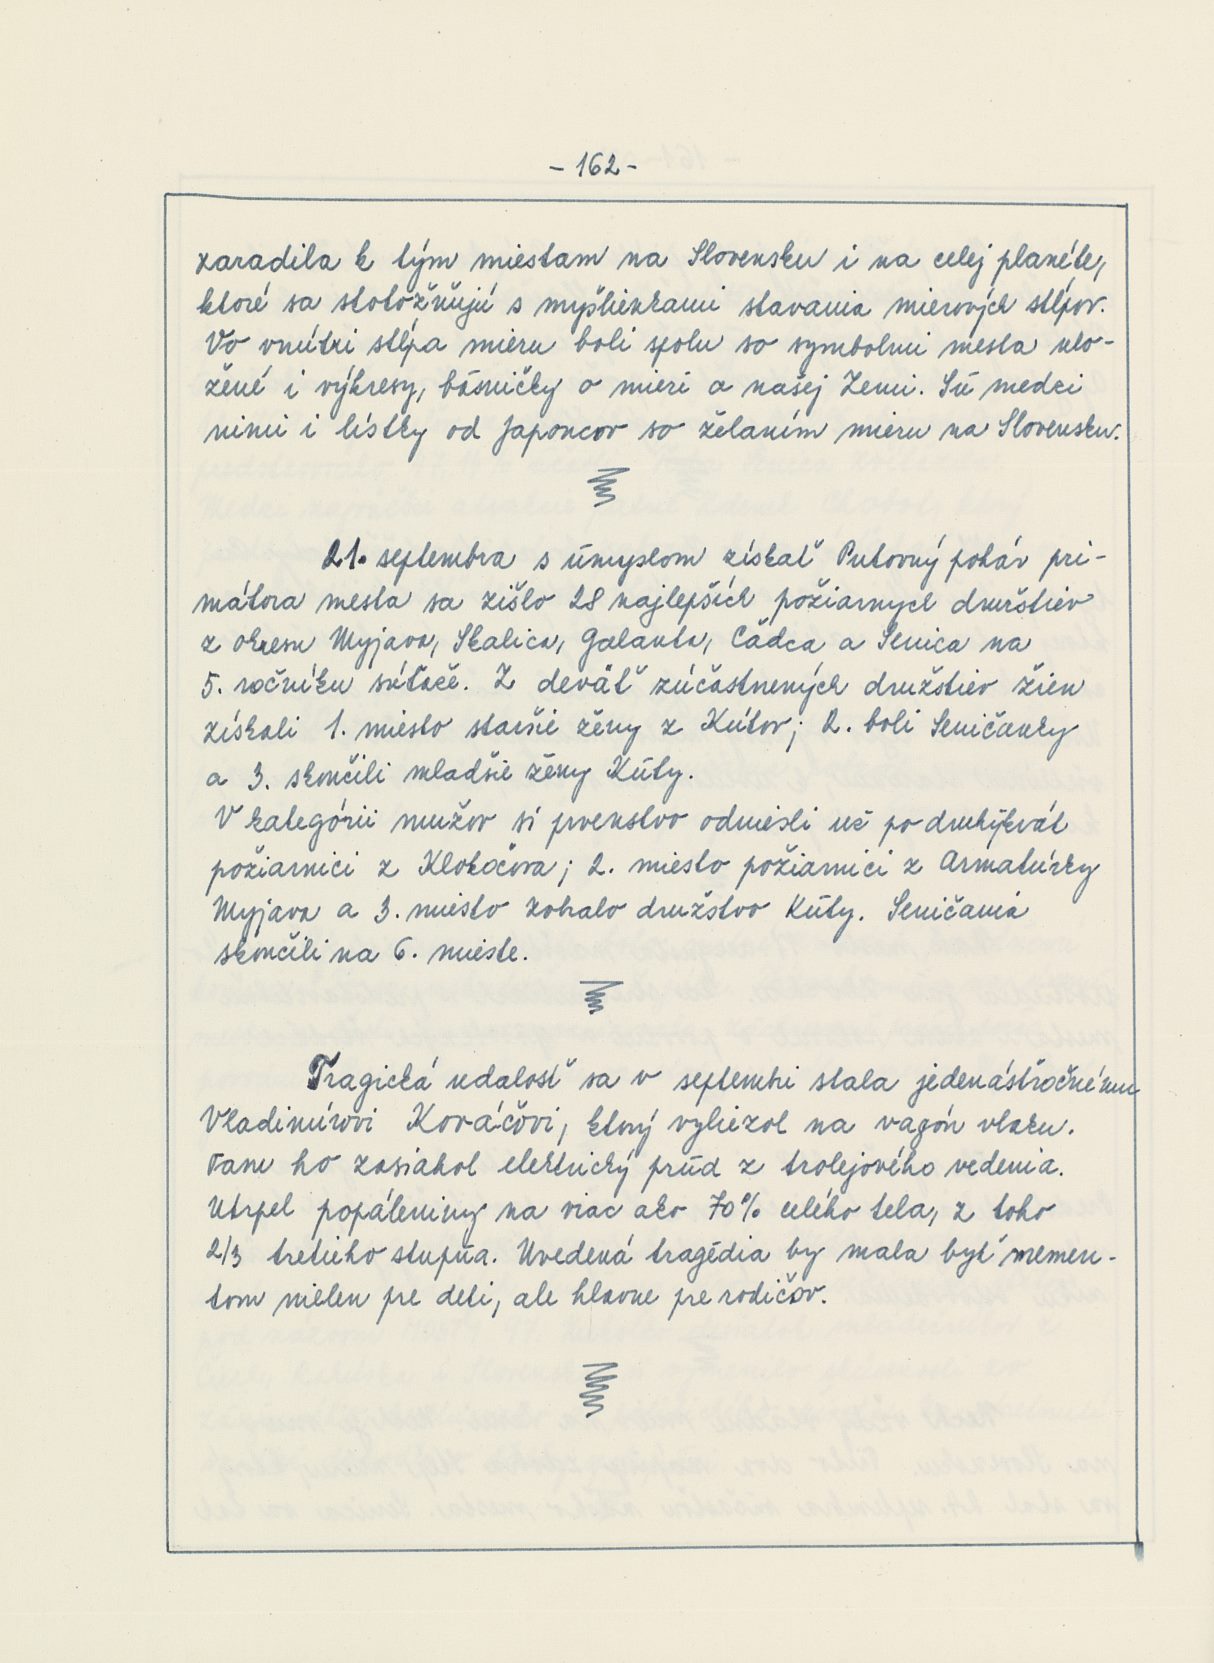 - 162 -
zaradila k tým miestam na Slovensku i na celej planéte,
ktoré sa stotožňujú s myšlienkami stavania mierových stĺpov.
Vo vnútri stĺpa mieru boli spolu so symbolmi mesta ulo-
žené i výkresy, básničky o mieri a našej Zemi. Sú medzi
nimi i lístky od Japoncov so želaním mieru na Slovensku.
21. septembra s úmyslom získať Putovný pohár pri-
mátora mesta sa zišlo 28 najlepších požiarnych družstiev
z okresu Myjava, Skalica, Galanta, Čadca a Senica na
5. ročníku súťaže. Z deväť zúčastnených družstiev žien
získali 1. miesto staršie ženy z Kútov; 2. boli Seničanky
a 3. skončili mladšie ženy Kúty.
V kategórii mužov si prvenstvo odniesli už po druhýkrát
požiarnici z Klokočova; 2. miesto požiarnici z Armatúrky
Myjava a 3. miesto zobralo družstvo Kúty. Seničania
skončili na 6. mieste.
Tragická udalosť sa v septembri stala jedenásťročnému
Vladimírovi Kováčovi, ktorý vyliezol na vagón vlaku.
Tam ho zasiahol elektrický prúd z trolejového vedenia.
Utrpel popáleniny na viac ako 70% celého tela, z toho
2/3 tretieho stupňa. Uvedená tragédia by mala byť memen-
tom nielen pre deti, ale hlavne pre rodičov.